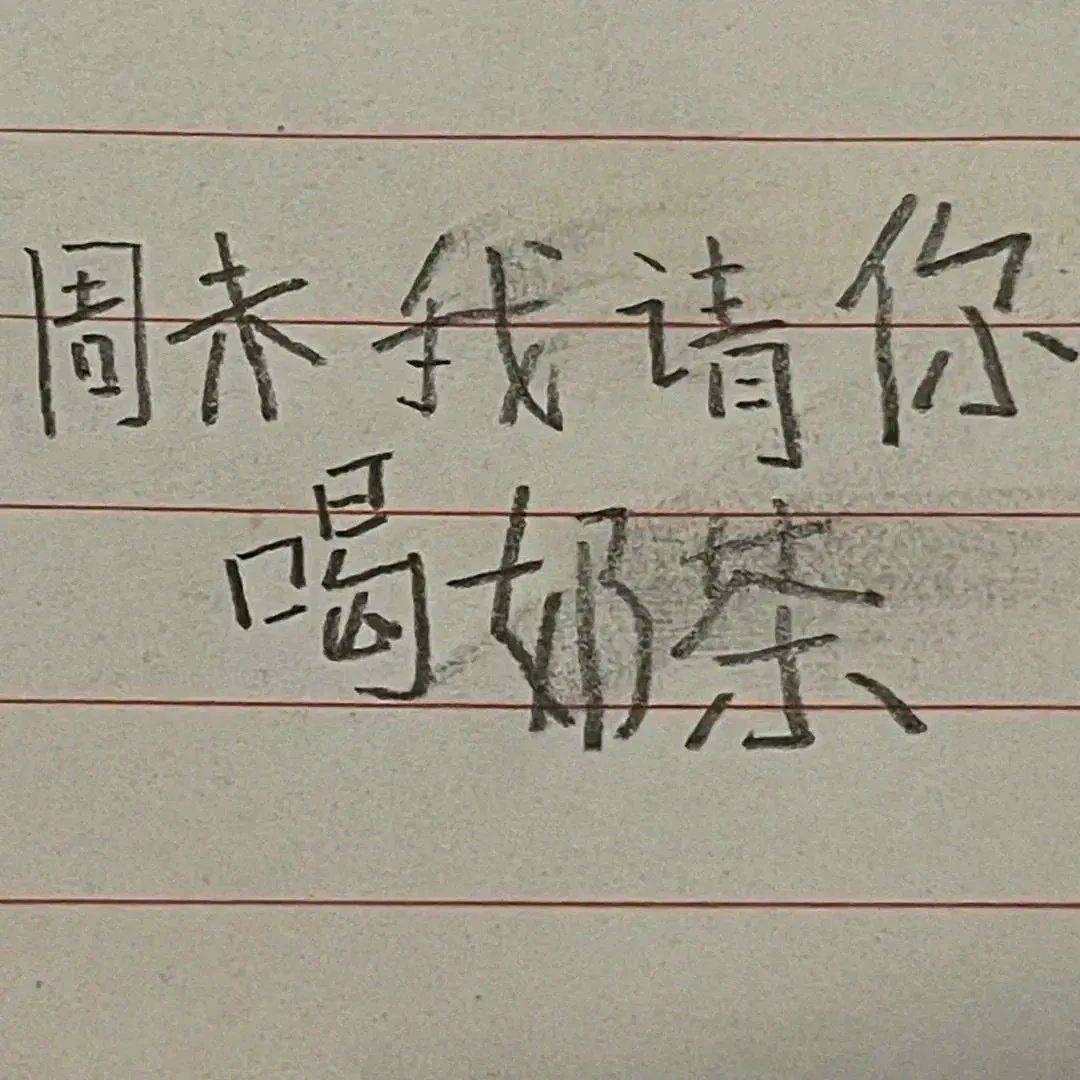 周末我请你
喝奶茶